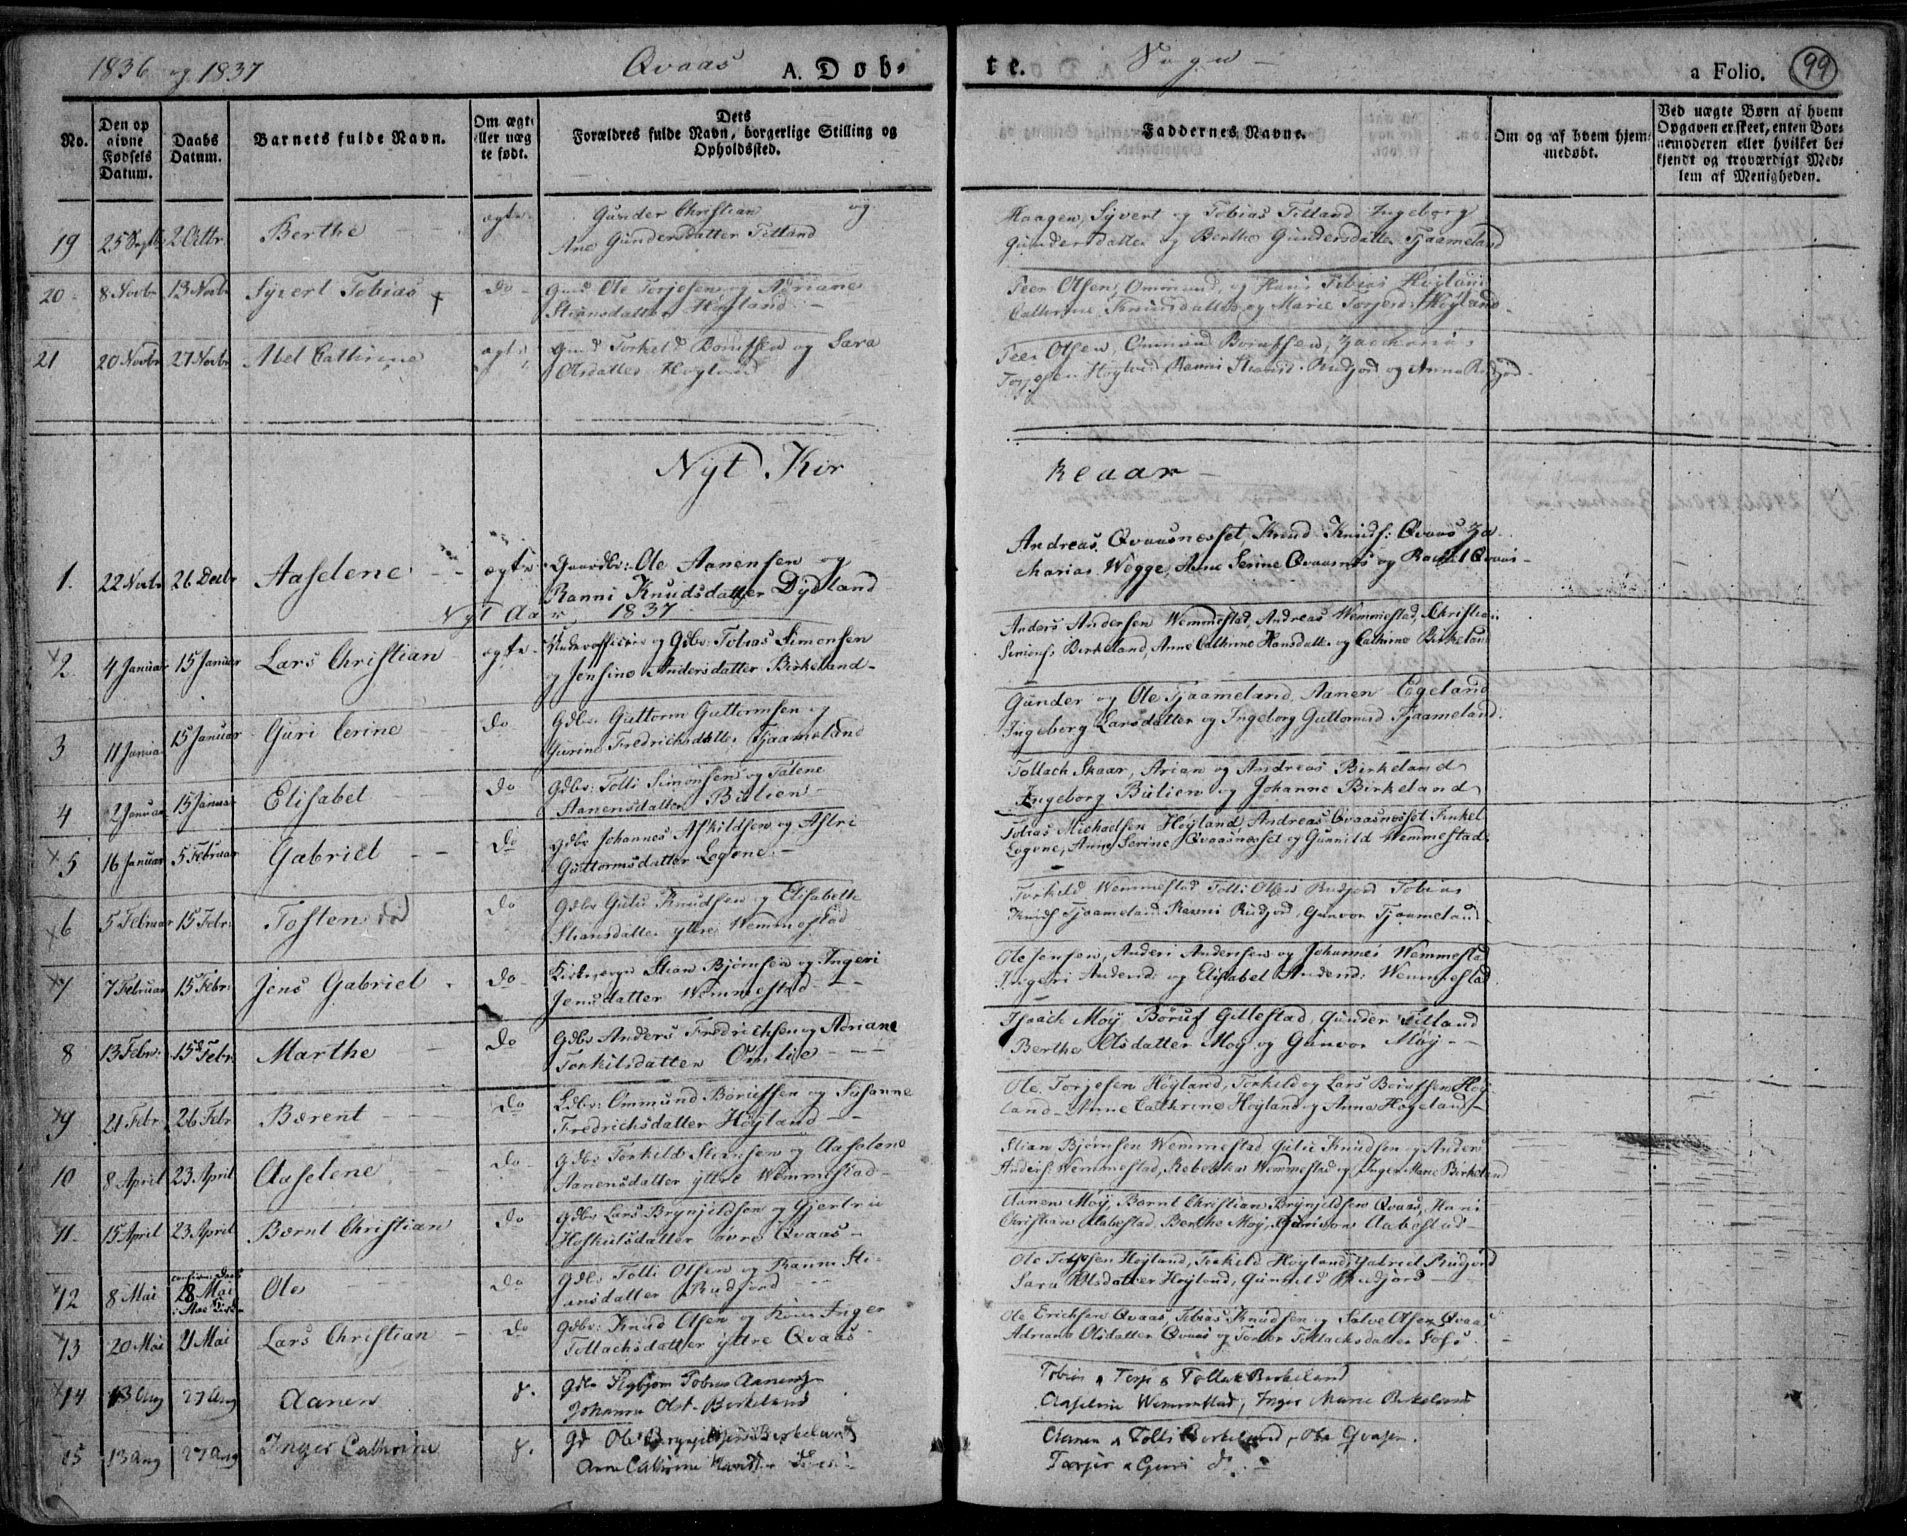 1836 og 1837 Qvaas A. Døb- te. Sogn a Folio. 99
No.
Den op
givne
Fødsels
Datum.
Daabs
Datum.
Barnets fulde Navn.
Om ægte
eller uæg
te født.
Dets
Forældres fulde Navn, borgerlige Stilling og
Opholdssted.
Faddernes Navne.
Om og af hvem hjem-
medøbt.
Ved uægte Børn af hvem
Opgaven er skeet, enten Bar-
nemoderen eller hvilket be-
kjendt og troværdigt Med-
lem af Menigheden.
19 25 Septb 2 Octbr Berthe ægte Gunder Christian og
Ane Gundersdatter Titland
Haagen, Syvert og Tobias Titland Ingeborg
Gundersdatter og Berthe Gundersdatter Fjaameland
20 8 Novbr 13 Novbr Syvert Tobias † do Ole Torjesen og Adriane
Stiansdatter Høyland
Peer Olsen, Ommund, og Hans Tobias Høyland
Cathrine Knudsdatter og Marie Torjesd: Høyland
21 20 Novbr 27 Novbr Abel Cathrine ægte Torkel Boruфsen og Sara
Olsdatter Høyland
Peer Olsen, Ommund Boruфsen, Zacharias
Torjesen Høyland, Ranni Stiansd. Rudjord og Anna Rudjord
Nyt Kir keaar
1. 22 Novbr 26 Decbr Aaselene ægte Gaardbr: Ole Aanensen og
Ranni Knudsdatter Dydland
Andreas Qvaasnesset, Knud Knuds: Qvaas Za
charias Wegge, Anne Serine Qvaasnes og Rachel Qvaas
Nyt Aar 1837
2 4 Januar 15 Januar Lars Christian ægte Underofficier og Gdbr: Tobias Simonsen
og Jensine Andersdatter Birkeland
Anders Andersen Wemmestad, Andreas Wemmestad, Christian
Simons: Birkeland, Anne Cathrine Hansdatter og Cathrine Birkeland
3 11 Januar 15 Januar Guri Serine do Gdbr: Guttorm Guttormsen og
Gurine Fredrichsdatter Fjaameland
Gunder og Ole Fjaameland, Aanen Egeland
Ingeborg Larsdatter og Ingeborg Guttormsd Fjaameland.
4 2 Januar 15 Januar Elisabet do Gdbr: Tolli Simonsen og Talene
Aanensdatter Bulien
Tollach Skaar, Arian og Andreas Birkeland
Ingeborg Bulien og Johanne Birkeland
5 16 Januar 5 Februar Gabriel do Gdbr Johannes Askildsen og Astri
Guttormsdatter Logone
Tobias Michaelsen Høyland, Andreas Qvaasnesset Tinkel
Logone, Anne Serine Qvaasnesset og Gunnild Wemmestad
6 5 Februar 15 Febr: Tosten død do Gdbr Guli Knudsen og Elisabeth
Stiansdatter yttre Wemmestad
Torkild Wemmestad Tolli Olsen Rudjord Tobias
Knuds Fjaameland Ranni Rudjord, Gunvor Fjaameland
7 7 Februar 15 Febr: Jens Gabriel do Stian Bjørnsen og Ingeri
Jensdatter Wemmestad
Ole Jensen, Anders Andersen og Johannes Wemmestad
Ingeri Andersd: og Elisabet Andersd: Wemmestad
8 13 Febr: 15 Febr: Marthe do Gdbr Anders Fredrichsen og Adriane
Torkilsdatter Omlie
Isaach Moy, Børuf Gillestad, Gunder Titland
Berthe Olsdatter Moy og Gunvor Moy
9 21 Febr 26 Febr Bærent do Gdbr: Ommund Børufsen og Susanne
Fredrichsdatter Høyland
Ole Torjesen Høyland, Torkild og Lars Børufsen Høy
land Anne Cathrine Høyland og Anna Høyeland
10 8 April 23 April Aaselene do Gdbr Torkild Stiansen og Aaselene
Aanensdatter yttre Wemmestad
Stian Bjørnsen Wemmestad Guli Knudsen og Anders
Anders: Wemmestad, Rebekka Wemmestad og Inger Marie Birkeland
11 15 April 23 April Bernt Christian do Gdbr Lars Brynjeldsen og Gjertru
Hoskulsdatter øvre Qvaas
Aanen Moy, Bernt Christian Brynjeldsen Qvaas, Hans
Christian Aabestad, Berthe Moy, Aabestad
12 8 Mai 28 Mai Ole do Gdbr Tolli Olsen og Ranni Sti
ansdatter Rudjord
Ole Torjesen Høyland, Torkild Høyland, Gabriel Rudjord
Sara Olsdatter Høyland, Gunnild Rudjord
13 20 Mai 21 Mai Lars Christian do Gdbr: Knud Olsen og Kone Inger
Tollachsdatter yttre Qvaas
Ole Erichsen Qvaas, Tobias Knudsen og Salve Olsen Qvaas
Adriane Olsdatter Qvaas og Tollachsdatter Foss
14 13 Aug 27 Aug Aanen d. Gdbr Tobias Aanensen
Johanne Olsd. Birkeland
Tobias, Terje & Tollak Birkeland
Aaselene Wemmestad, Inger Marie Birkeland
15 13 Aug 27 Aug Inger Cathrine d. Gd Ole Brynjeldsen Birkeland
Anne Cathrine
Aanen & Tolli Birkeland, Ole
Guri d.